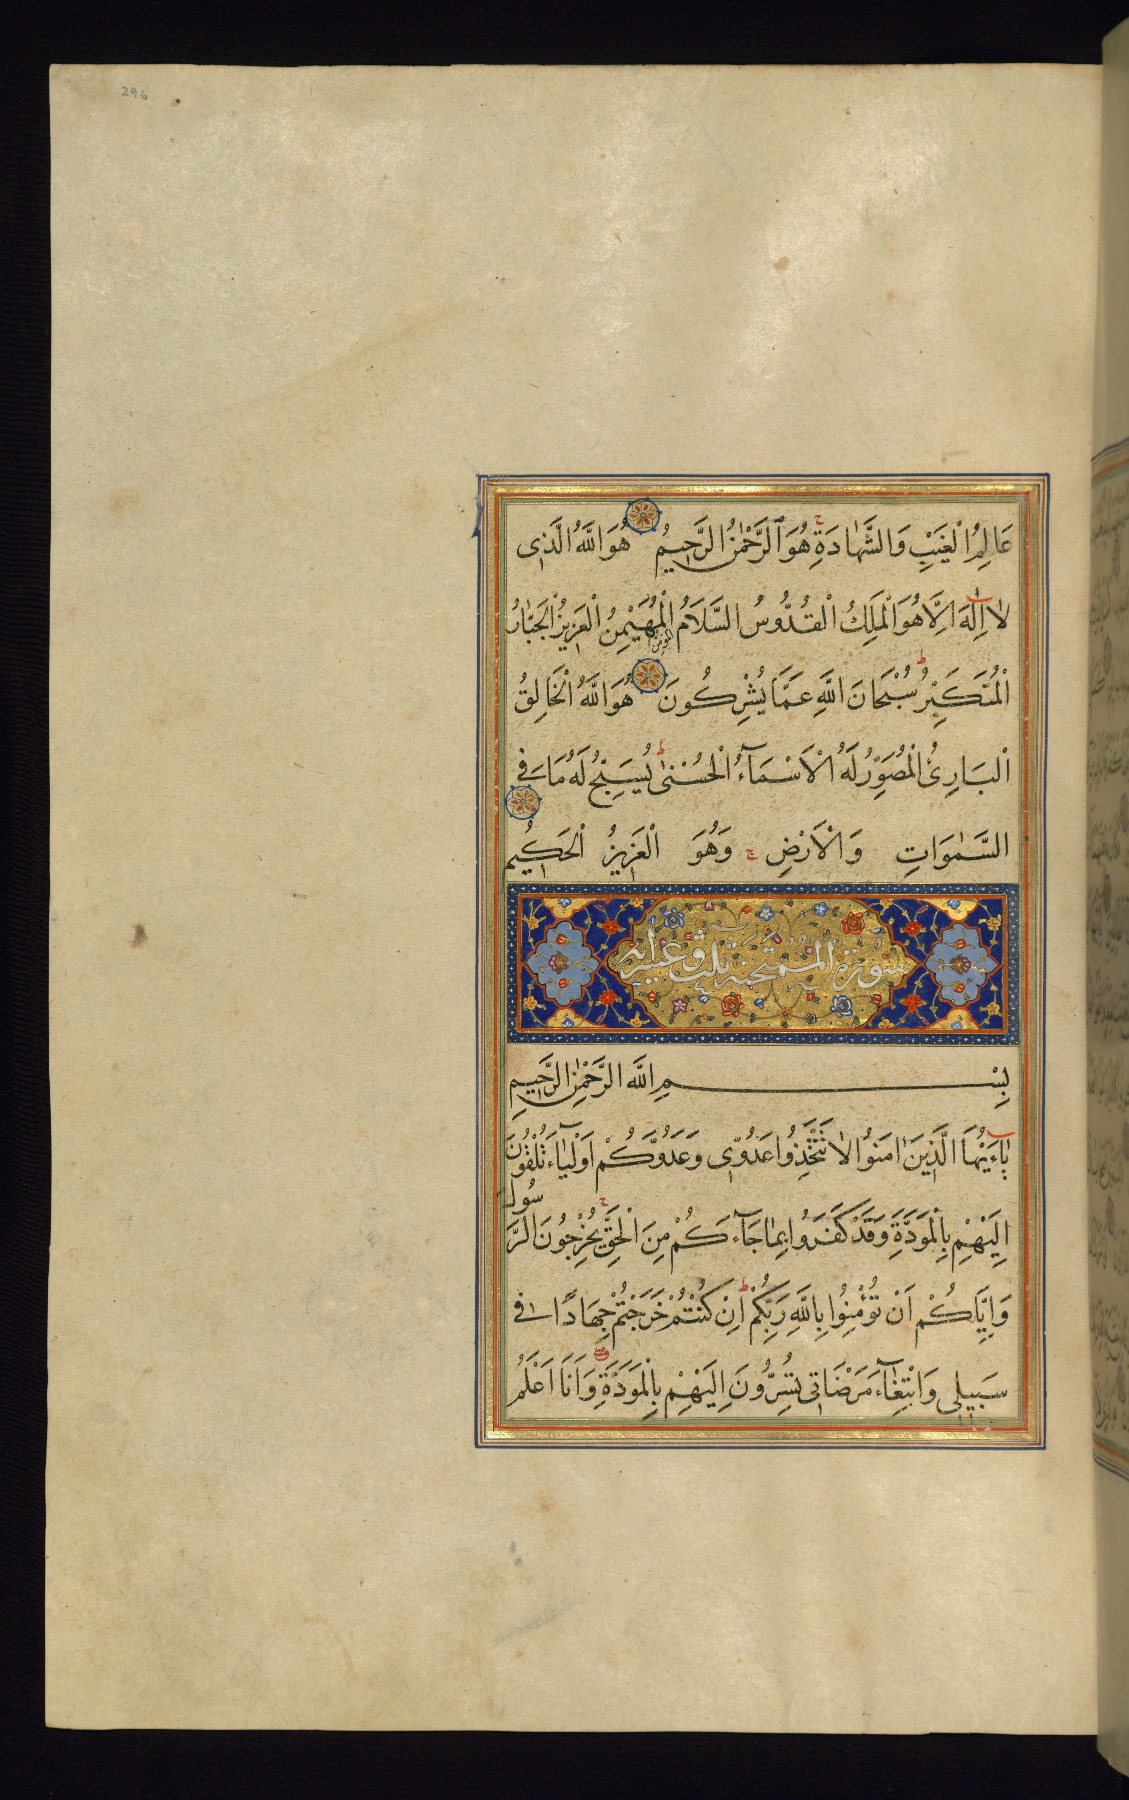 296
عَالِمُ الْغَيْبِ وَالشَّهَادَةِ ج هُوَ الرَّحْمٰنُ الرَّحِيمُ هُوَ اللّٰهُ الَّذِى
لَا اِلٰهَ اِلَّا هُوَ الْمَلِكُ الْقُدُّوسُ السَّلَامُ المؤمن الْمُهَيْمِنُ الْعَزِيزُ الْجَبَّارُ
الْمُتَكَبِّرُ ط سُبْحَانَ اللّٰهِ عَمَّا يُشْرِكُونَ هُوَ اللّٰهُ الْخَالِقُ
الْبَارِئُ الْمُصَوِّرُ لَهُ الْاَسْمَآءُ الْحُسْنٰى ط يُسَبِّحُ لَهُ مَا فِى
السَّمٰوَاتِ وَالْاَرْضِ ج وَهُوَ الْعَزِيزُ الْحَكِيمُ
سورة الممتحنة ثلث وعشر آية
بِسْمِ اللّٰهِ الرَّحْمٰنِ الرَّحِيمِ
يٰآءَيُّهَا الَّذِينَ اٰمَنُوا لَا تَتَّخِذُوا عَدُوِّى وَعَدُوَّكُمْ اَوْلِيَآءَ تُلْقُونَ
اِلَيْهِمْ بِالْمَوَدَّةِ وَقَدْ كَفَرُوا بِمَا جَآءَكُمْ مِنَ الْحَقِّ ج يُخْرِجُونَ الرَّسُولَ
وَاِيَّاكُمْ اَنْ تُؤْمِنُوا بِاللّٰهِ رَبِّكُمْ ط اِنْ كُنْتُمْ خَرَجْتُمْ جِهَادًا فِى
سَبِيلِى وَابْتِغَآءَ مَرْضَاتِى تُسِرُّونَ اِلَيْهِمْ بِالْمَوَدَّةِ وَاَنَا اَعْلَمُ